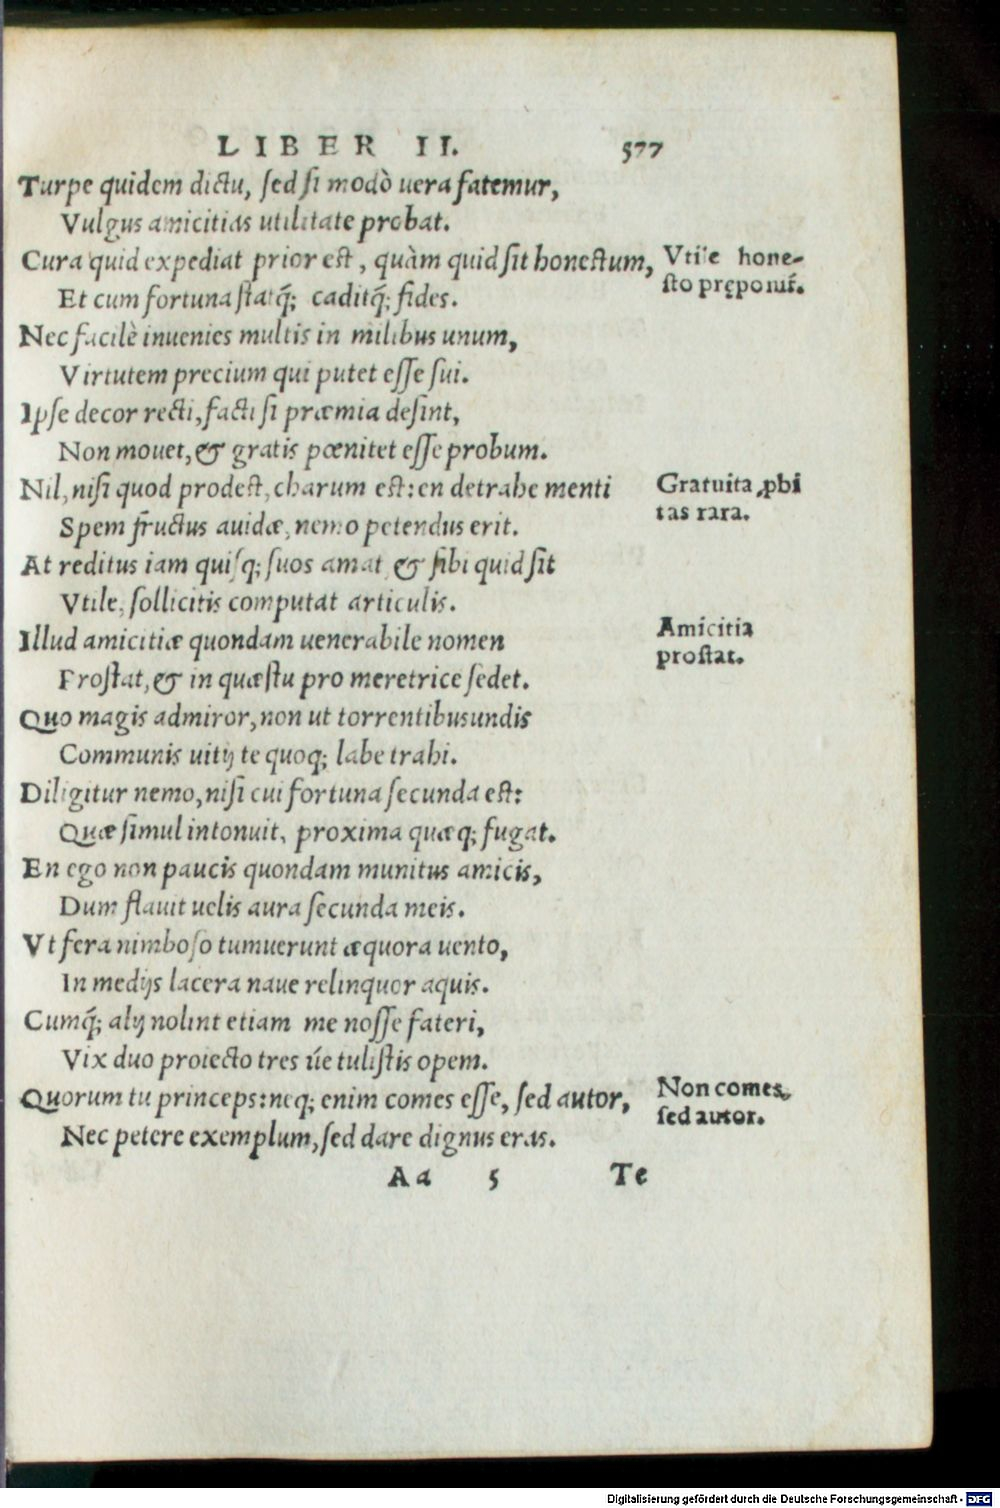 LIBER II. 577
Turpe quidem dictu, sed si modò uera fatemur,
Vulgus amicitias utilitate probat.
Cura quid expediat prior est, quàm quid sit honestum,
Vtile hone-
sto pręponit̃.
Et cum fortuna statq́; caditq́; fides.
Nec facilè inuenies multis in milibus unum,
Virtutem precium qui putet esse sui.
Ipse decor recti, facti si præmia desint,
Non mouet, & gratis pœnitet esse probum.
Nil, nisi quod prodest, charum est: en detrahe menti
Gratuita ꝓbi
tas rara.
Spem fructus auidæ, nemo petendus erit.
At reditus iam quisq; suos amat, & sibi quid sit
Vtile, sollicitis computat articulis.
Illud amicitiæ quondam uenerabile nomen
Amicitia
prostat.
Prostat, & in quæstu pro meretrice sedet.
Quo magis admiror, non ut torrentibus undis
Communis uitij te quoq; labe trahi.
Diligitur nemo, nisi cui fortuna secunda est:
Quæ simul intonuit, proxima quæq; fugat.
En ego non paucis quondam munitus amicis,
Dum flauit uelis aura secunda meis.
Vt fera nimboso tumuerunt æquora uento,
In medijs lacera naue relinquor aquis.
Cumq́; alij nolint etiam me nosse fateri,
Vix duo proiecto tres úe tulistis opem.
Quorum tu princeps: neq; enim comes esse, sed autor,
Non comes,
sed autor.
Nec petere exemplum, sed dare dignus eras.
Aa 5 Te
Digitalisierung gefördert durch die Deutsche Forschungsgemeinschaft - DFG